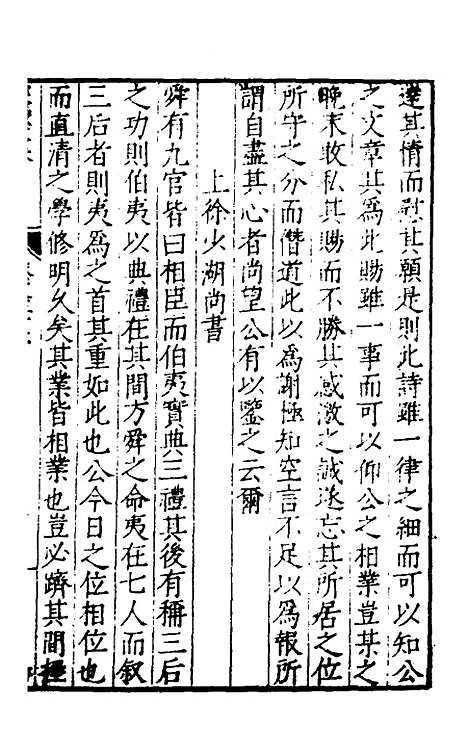 達其情而慰其願是則此詩雖一律之細而可以知公
之文章其為此賜雖一事而可以仰公之相業豈某之
晚末敢私其賜而不勝其感激之誠遂忘其所居之位
所守之分而僭道此以為謝極知空言不足以為報所
謂自盡其心者尚望公有以鑒之云爾
上徐少湖尚書
舜有九官皆曰相臣而伯夷實典三禮其後有稱三后
之功則伯夷以典禮在其間方舜之命夷在七人而叙
三后者則夷為之首其重如此也公今日之位相位也
而直清之學修明久矣其業皆相業也豈必躋其間